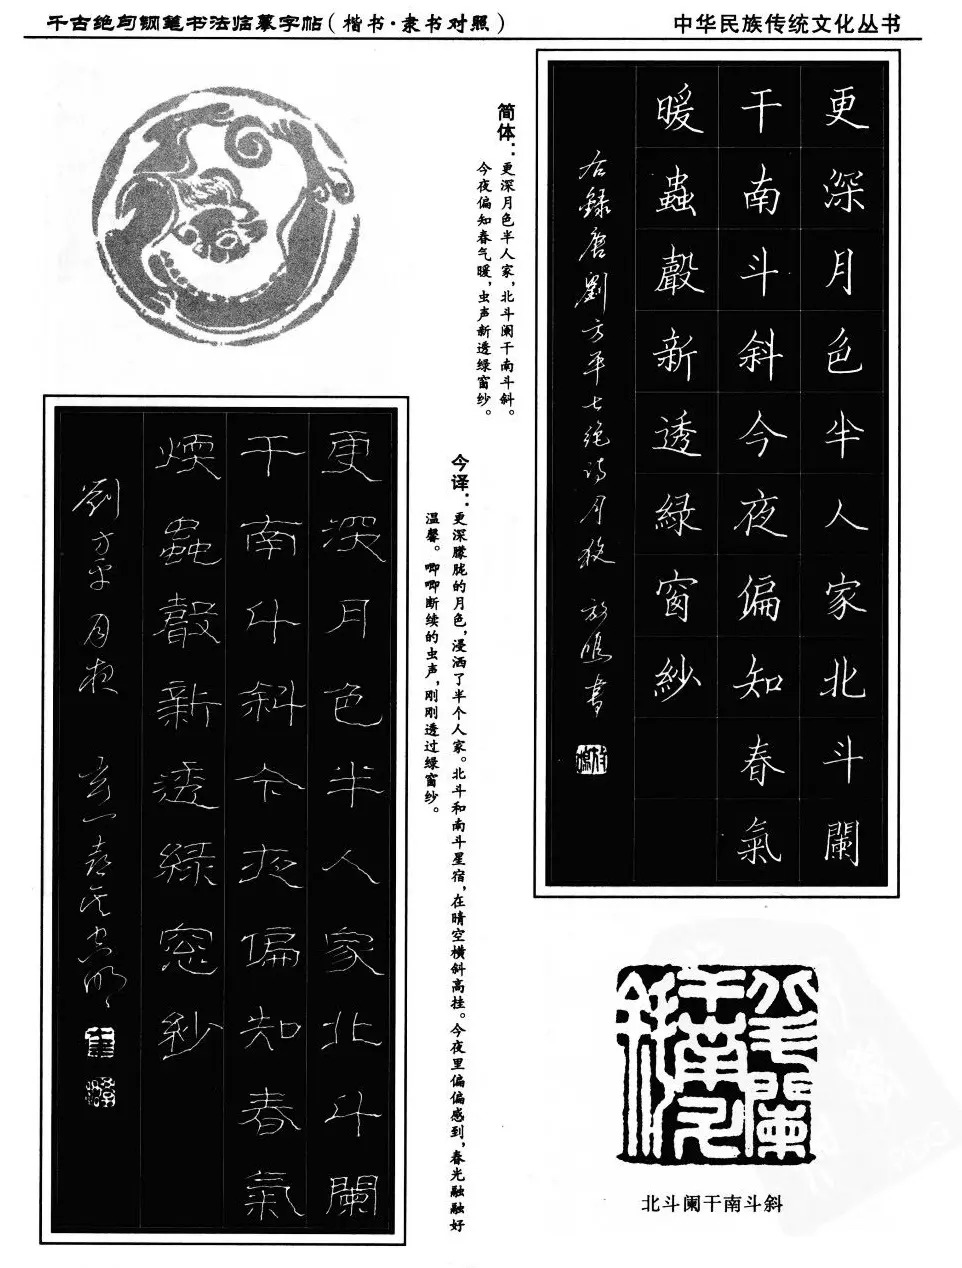 千古绝句钢笔书法临摹字帖(楷书·隶书对照)
中华民族传统文化丛书
更深月色半人家北斗闌
干南斗斜今夜偏知春氣
暖蟲聲新透綠窗紗
右錄唐劉方平七绝诗月夜 放鳴書
简体:更深月色半人家,北斗阑干南斗斜。
今夜偏知春气暖,虫声新透绿窗纱。
今译:更深朦胧的月色,浸洒了半个人家。北斗和南斗星宿,在晴空横斜高挂。今夜里偏偏感到,春光融融好
温馨。唧唧断续的虫声,刚刚透过绿窗纱。
更深月色半人家北斗闌
干南斗斜今夜偏知春氣
煗蟲聲新透綠窓紗
劉方平月夜
北斗阑干南斗斜